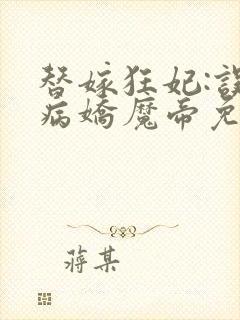 替嫁狂妃:误
病娇魔帝免
蒋某